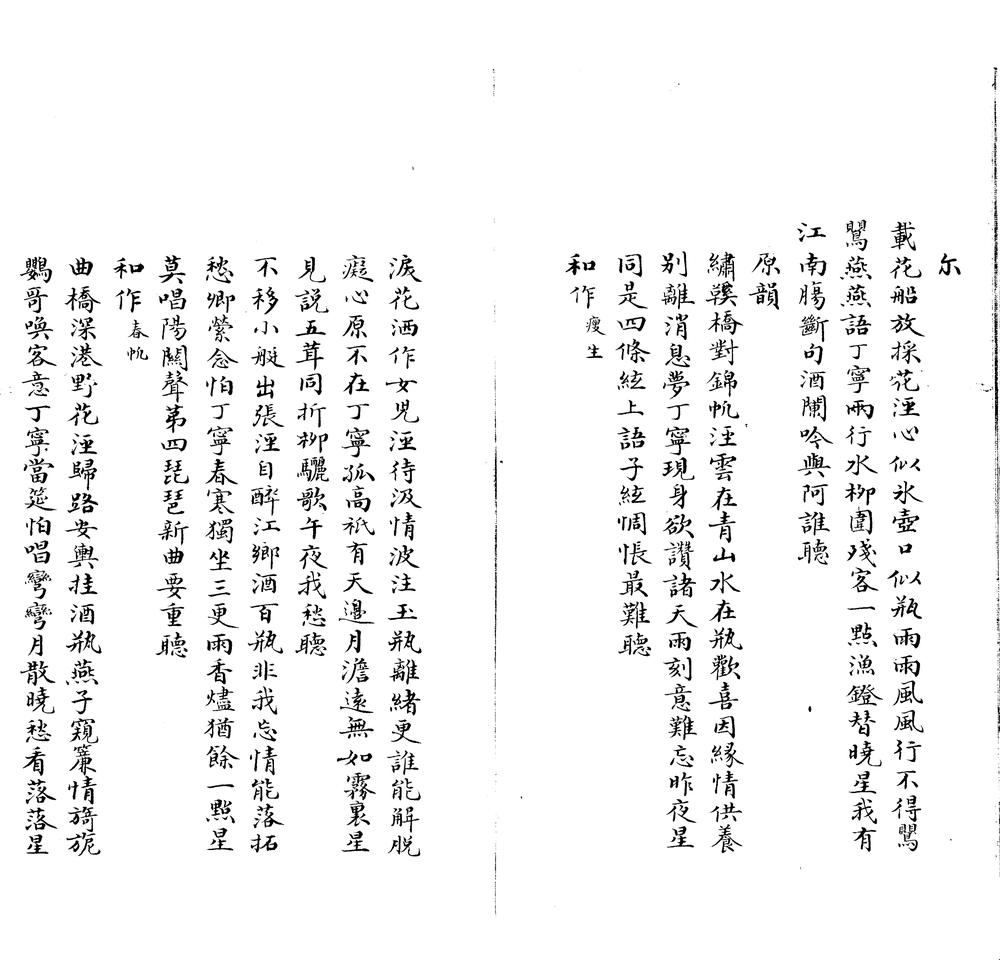 尔
載花船放採花涇心似氷壺口似瓶雨雨風風行不得鶯
鶯燕燕語丁寧兩行水柳圍殘客一點漁鐙替曉星我有
江南腸斷句酒闌吟與阿誰聽
原韻
繡鞵橋對錦帆汪雲在青山水在瓶歡喜因緣情供養
别離消息夢丁寧現身欲讚諸天雨刻意難忘昨夜星
同是四條絃上語子絃惆悵最難聽
和作 瘦生
淚花洒作女児涇待汲情波注玉瓶離緒更誰能解脱
癡心原不在丁寧孤高祇有天邊月澹遠無如霧裏星
見説五茸同折栁驪歌午夜我愁聽
不移小艇出張涇自醉江鄉酒百瓶非我忘情能落拓
愁卿縈念怕丁寧春寒獨坐三更雨香燼猶餘一點星
莫唱陽關聲苐四琵琶新曲要重聽
和作 春帆
曲橋深港野花涇歸路安輿挂酒瓶燕子窺簾情旖旎
鸚哥喚客意丁寧當筵怕唱彎彎月散曉愁看落落星